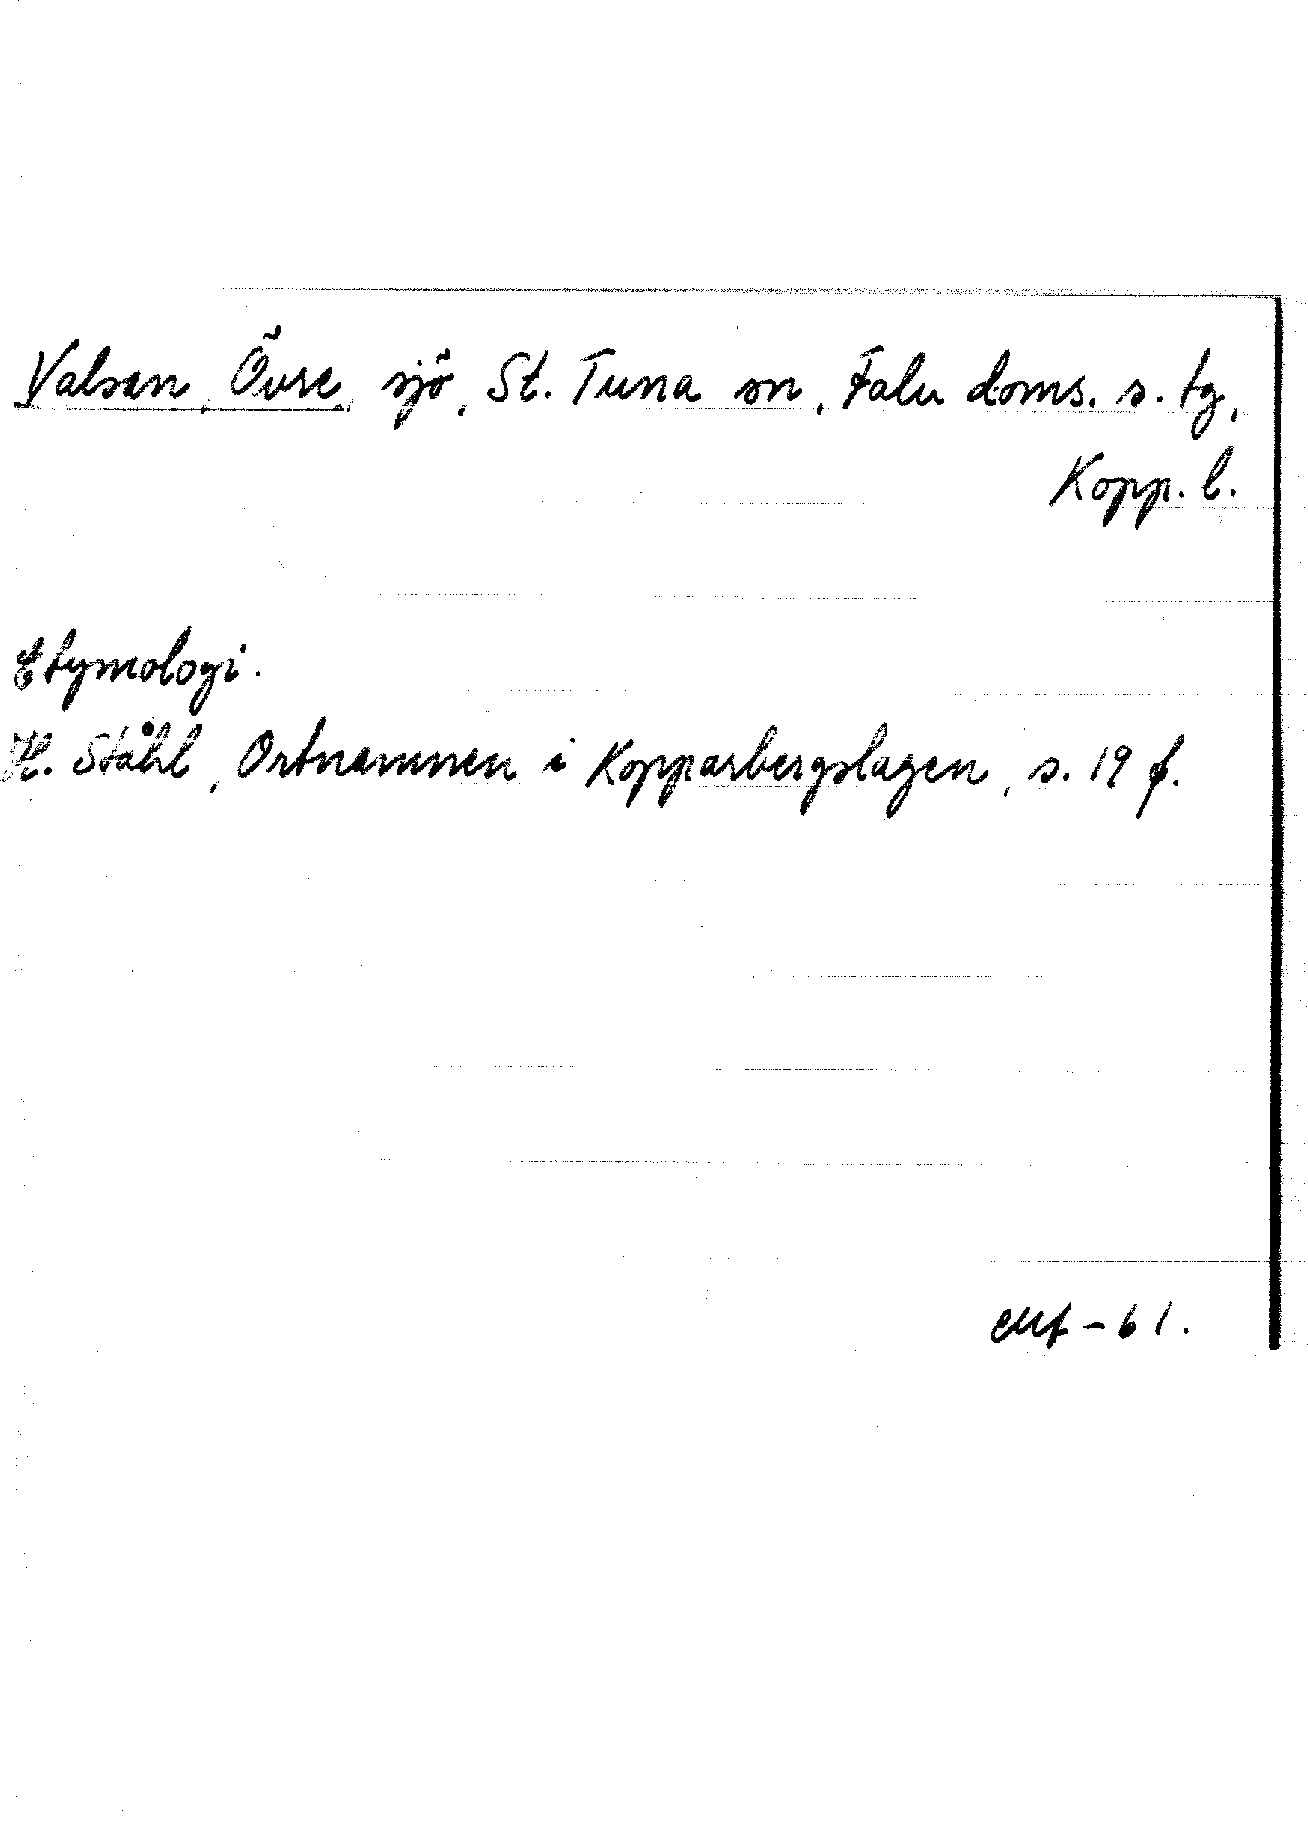 Valsan, Övre sjö, St. Tuna sn, Falu doms. s. tg,
Kopp. l.
Etymologi.
H. Ståhl, Ortnamnen i Kopparbergslagen, s. 19 f.
-61.